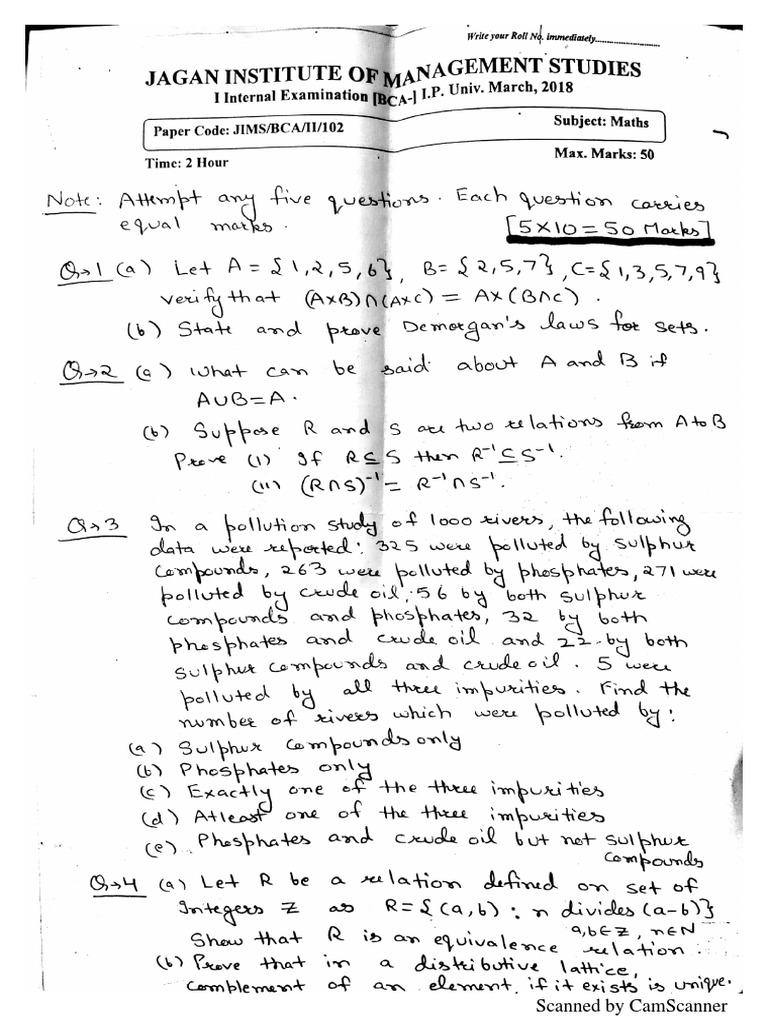 Write your Roll No. immediately......................
JAGAN INSTITUTE OF MANAGEMENT STUDIES
I Internal Examination [BCA-] I.P. Univ. March, 2018
Paper Code: JIMS/BCA/II/102 Subject: Maths
Time: 2 Hour Max. Marks: 50
Note: Attempt any five questions. Each question carries
equal marks. [5×10=50 Marks]
Q→1 (a) Let A = {1,2,5,6}, B= {2,5,7}, C={1,3,5,7,9}
verify that (A×B)∩(A×C) = A×(B∩C).
(b) State and prove Demorgan's laws for sets.
Q→2 (a) What can be said about A and B if
A∪B=A.
(b) Suppose R and S are two relations from A to B
Prove (i) If R⊆S then R⁻¹⊆S⁻¹.
(ii) (R∩S)⁻¹ = R⁻¹∩S⁻¹.
Q→3 In a pollution study of 1000 rivers, the following
data were reported: 325 were polluted by sulphur
compounds, 263 were polluted by phosphates, 271 were
polluted by crude oil, 56 by both sulphur
compounds and phosphates, 32 by both
phosphates and crude oil and 22 by both
sulphur compounds and crude oil. 5 were
polluted by all three impurities. Find the
number of rivers which were polluted by:
(a) Sulphur compounds only
(b) Phosphates only
(c) Exactly one of the three impurities
(d) Atleast one of the three impurities
(e) Phosphates and crude oil but not sulphur
compounds
Q→4 (a) Let R be a relation defined on set of
Integers Z as R={(a,b) : n divides (a-b)}
a,b∈Z, n∈N
Show that R is an equivalence relation.
(b) Prove that in a distributive lattice,
complement of an element, if it exists is unique.
Scanned by CamScanner